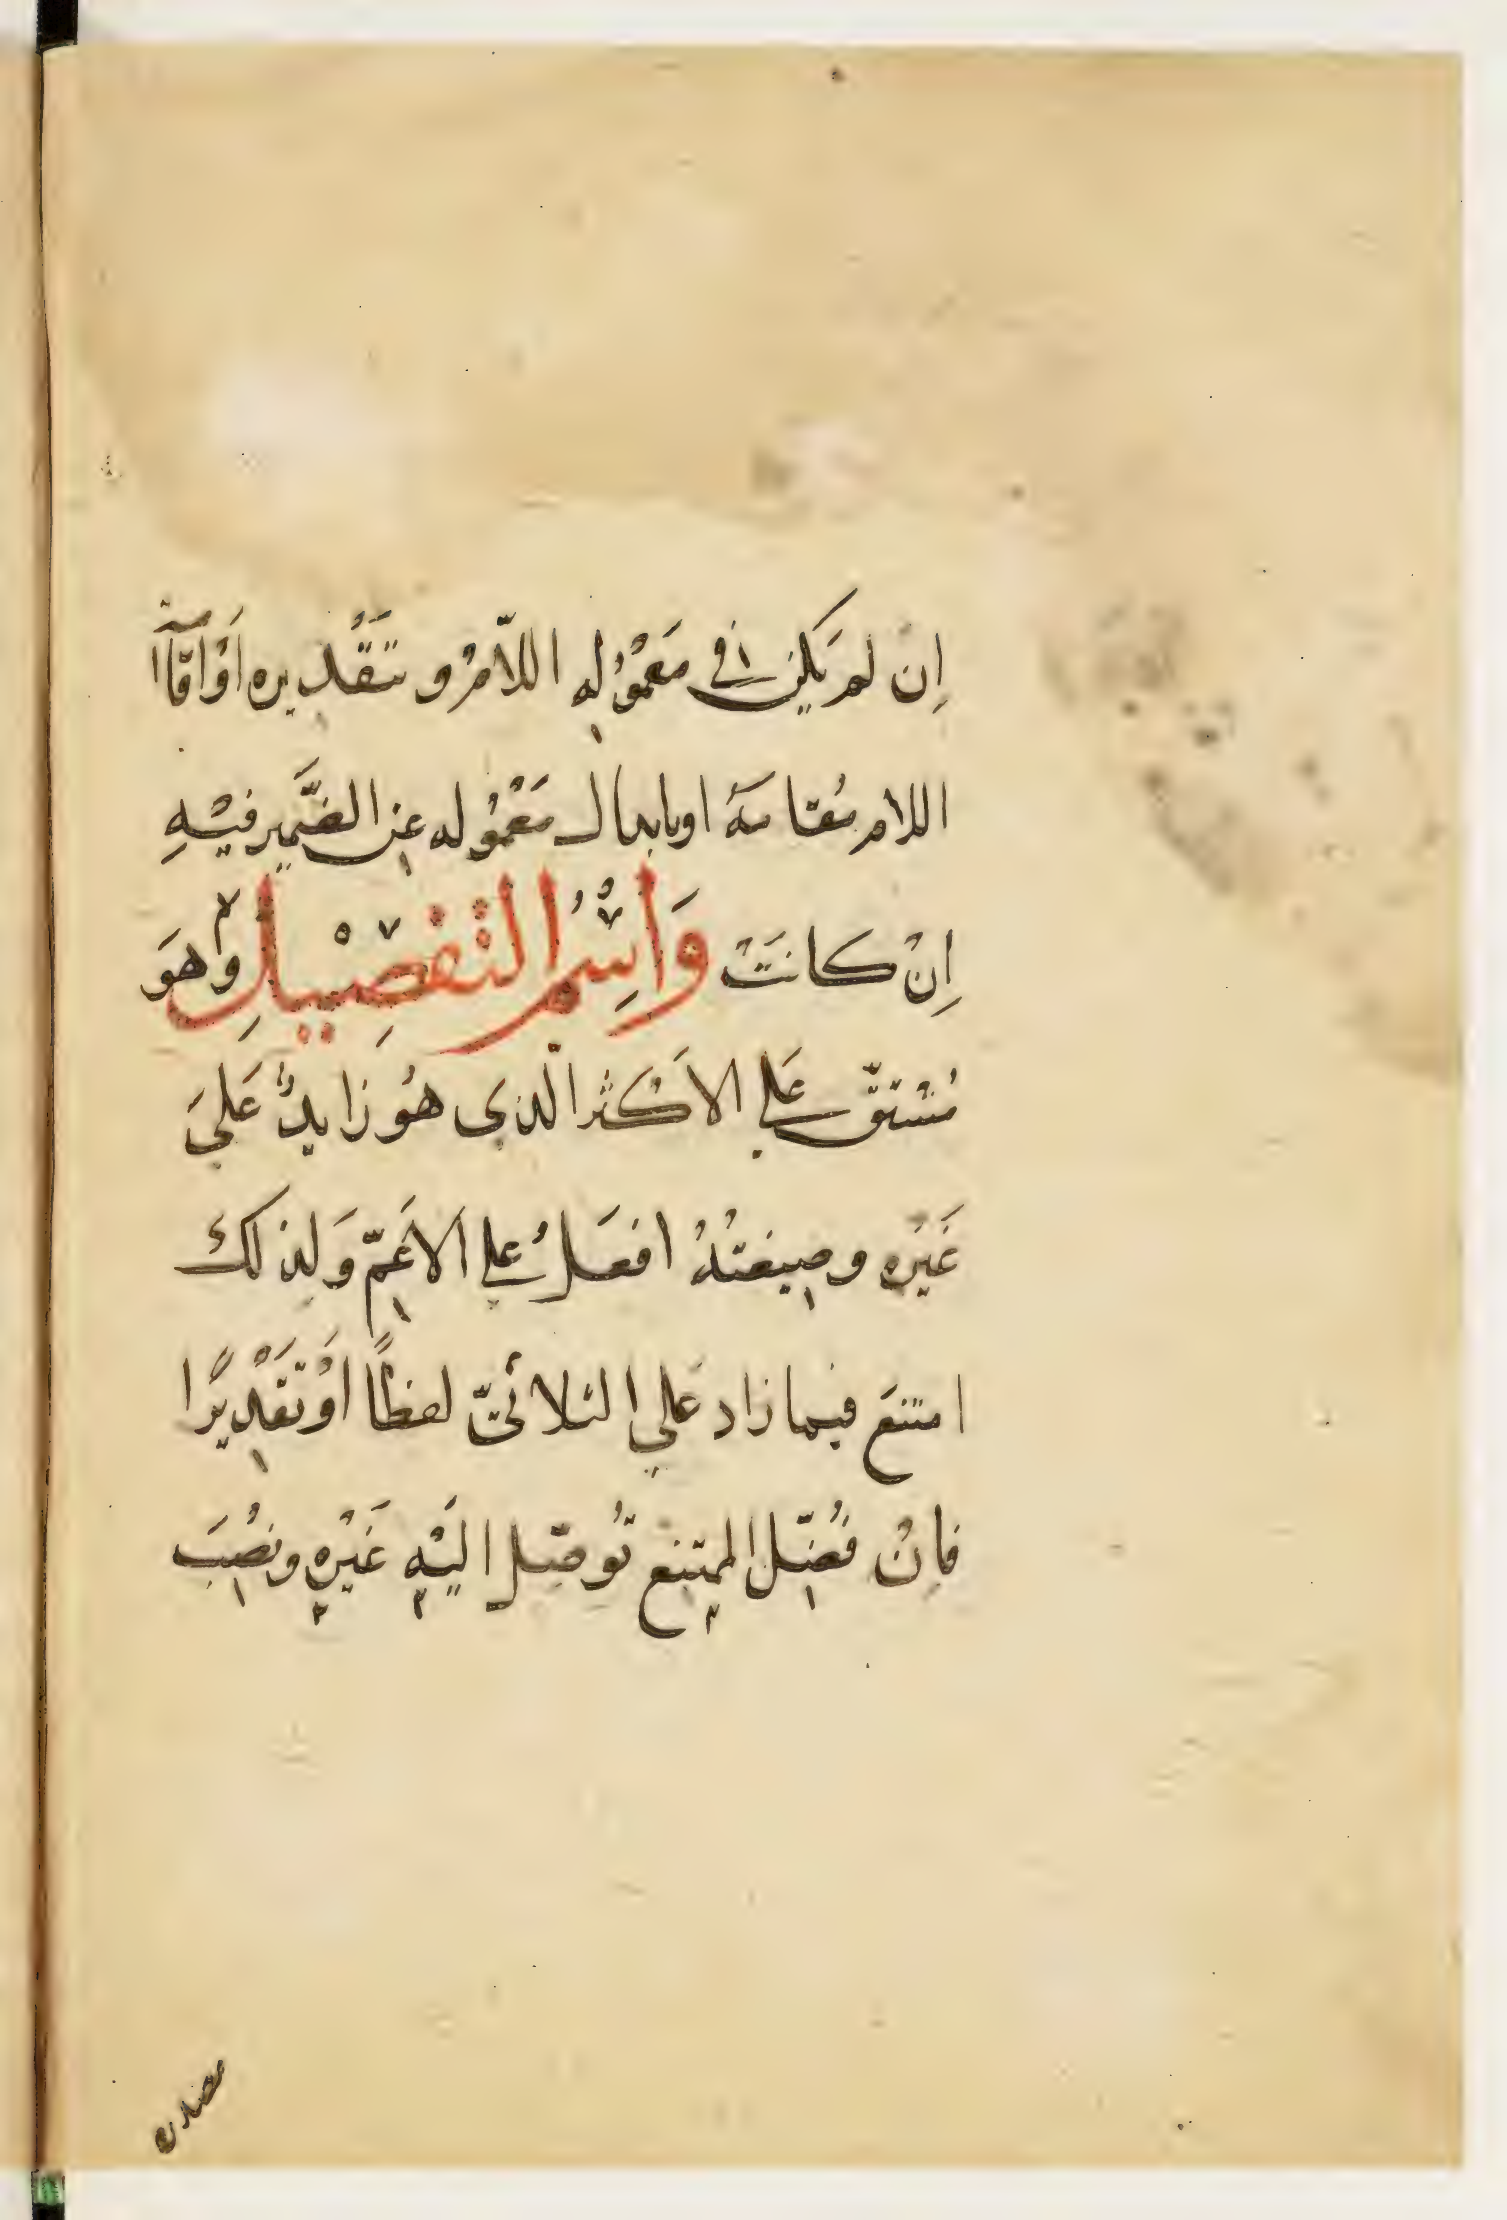 اِن لم يَكن في مَعمُوْلِهِ اللاّمُ و تَقْديره اَوْ اقامة
اللام مُقامَهُ او بابدال مَعْمُوله عن الضَّمير فيْهِ
اِنْ كانَتْ وَاسْمُ التّفضِيْلِ وهوَ
مُشْتقّ عَلى الاَكْثر الّذى هُو زايدٌ عَلىَ
غَيْره وصيغتُهُ افعَلُ على الاَعَمّ وَلذلك
امتنعَ فيما زاد عَلى الثلاثىّ لفظًا اَوْ تَقْدِيْرًا
فاِنْ فُضّل الممتنع تُوصّل اليْهِ غَيْرِهِ ونُصِبَ
مصدره